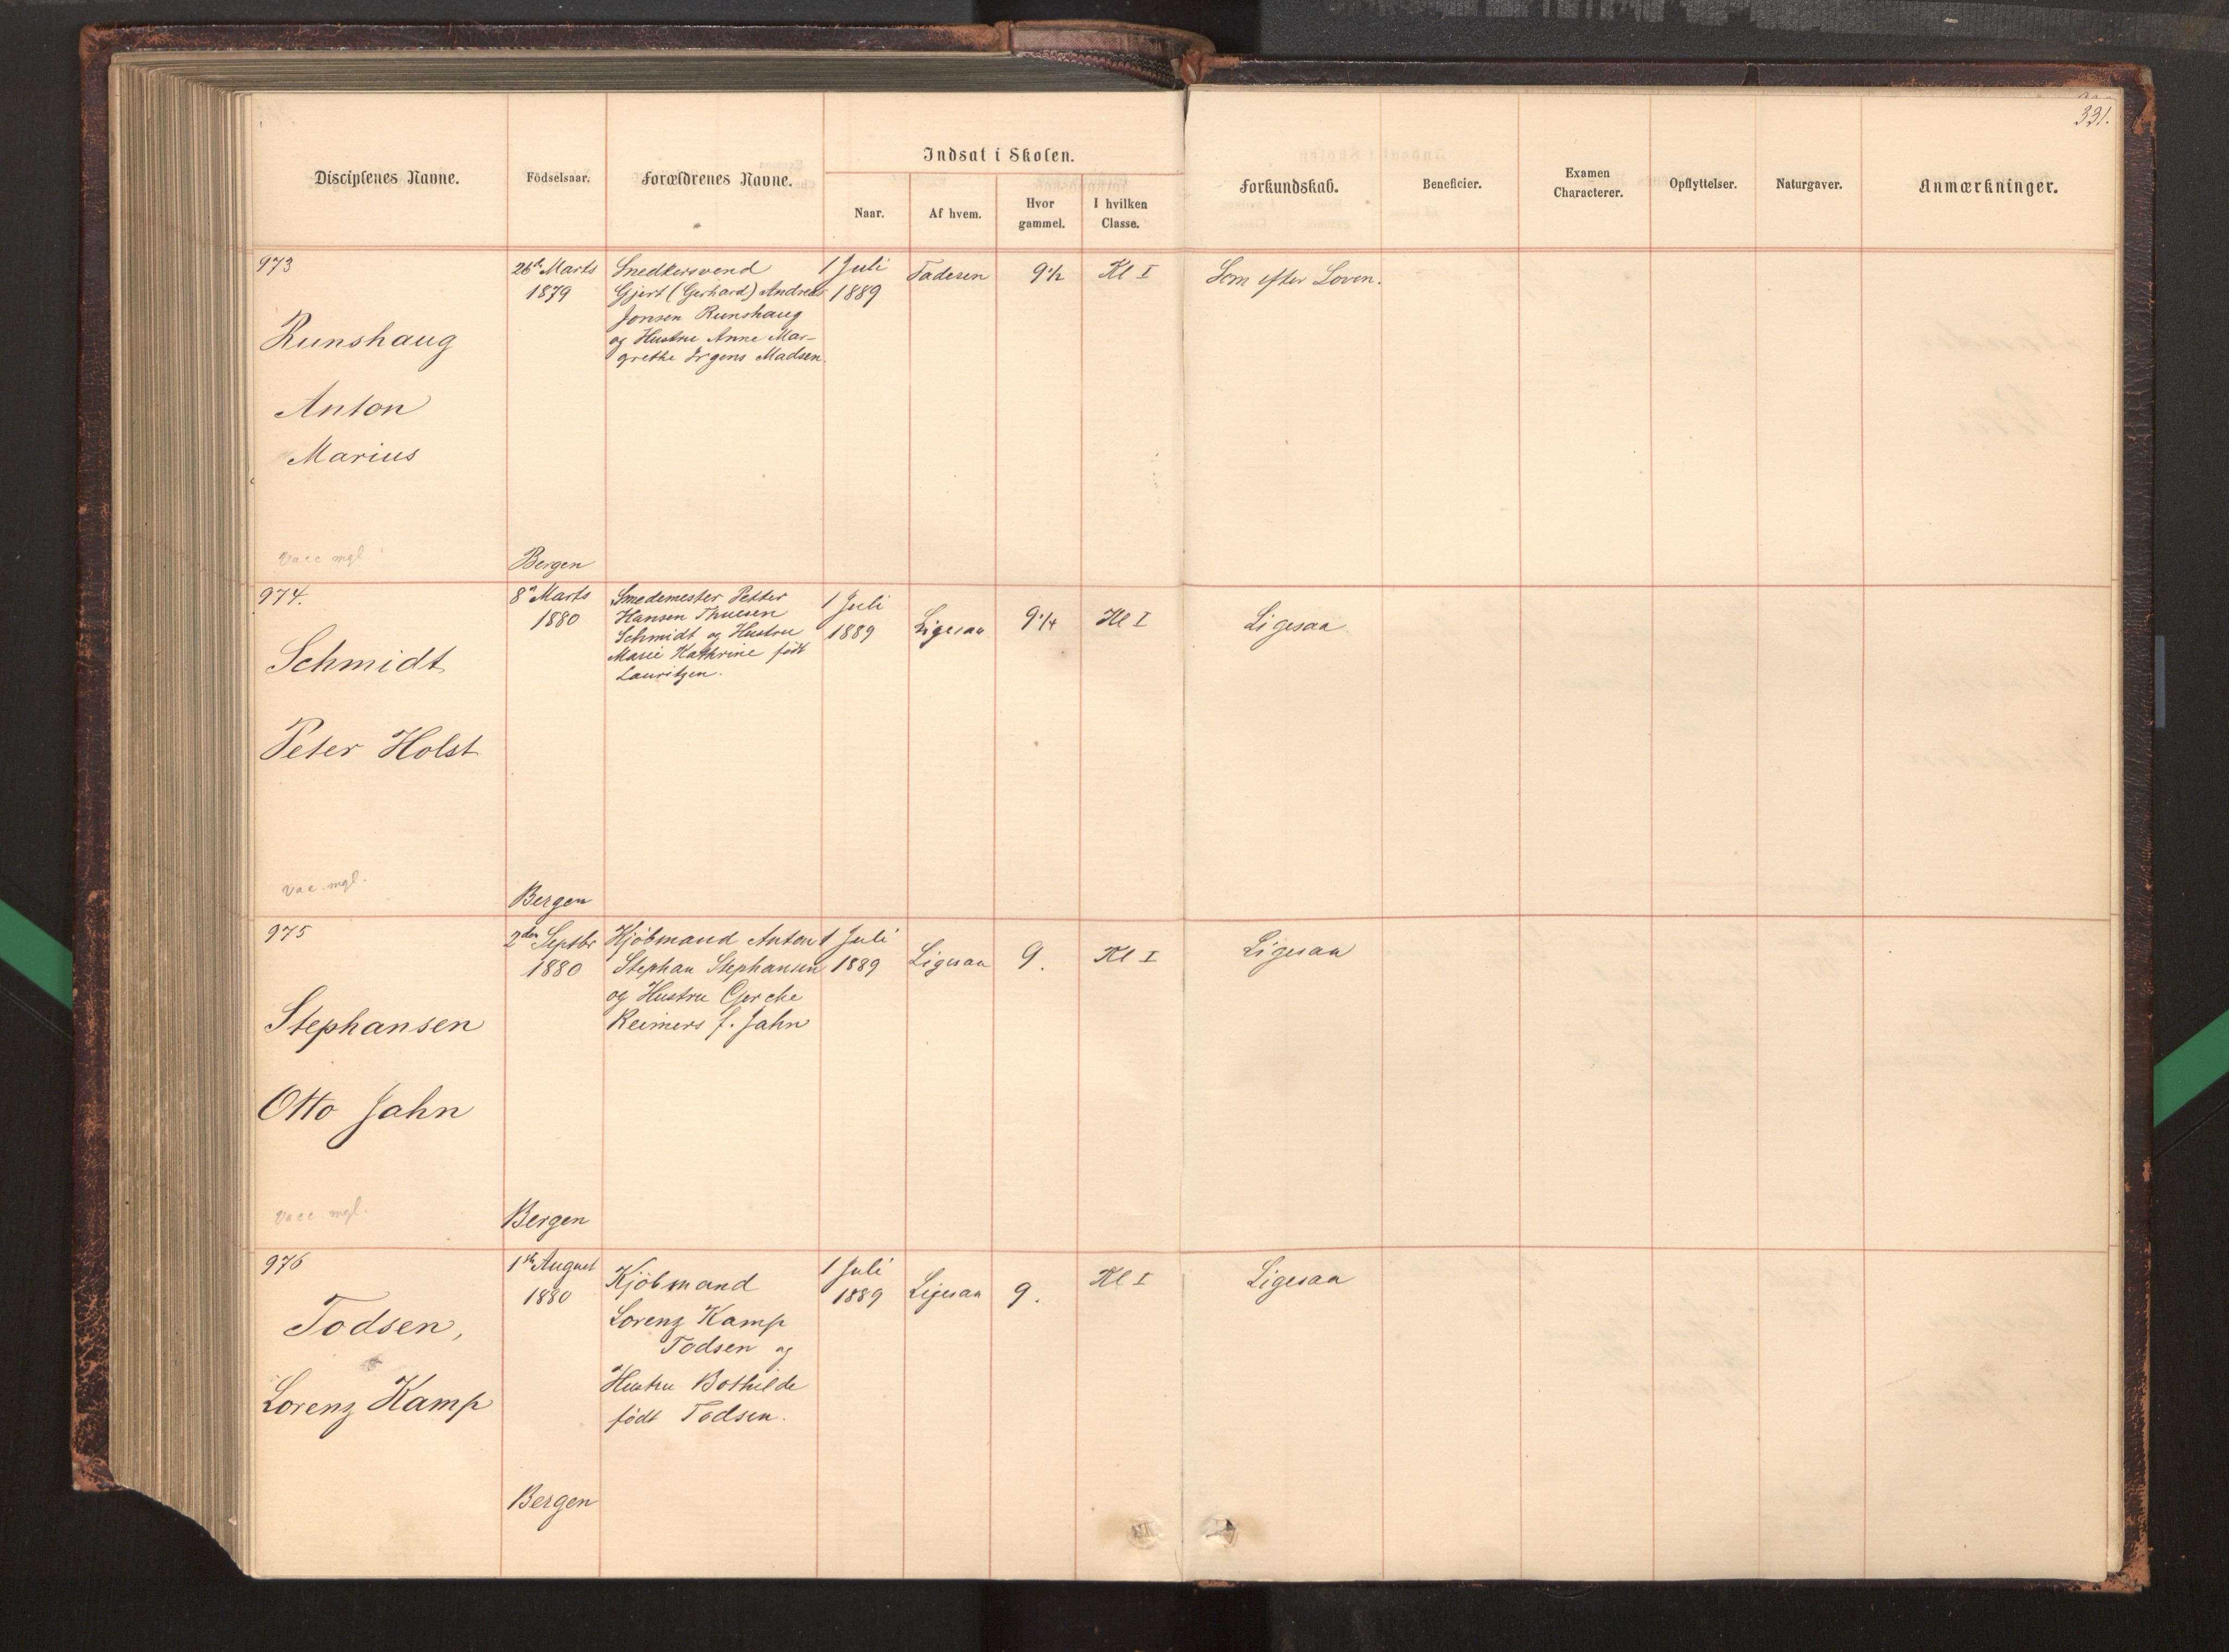 331.
Disciplenes Navne.
Födselsaar.
Forældrenes Navne.
Indsat i Skolen.
Naar.
Af hvem.
Hvor gammel.
I hvilken Classe.
Forkundskab.
Beneficier.
Examen Characterer.
Opflyttelser.
Naturgaver.
Anmærkninger.
973
Runshaug
Anton
Marius
vacc mgl
26de Marts
1879
Bergen
Snedkersvend
Gjert (Gerhard) Andreas
Jonsen Runshaug
og Hustru Anne Mar-
grethe Irgens Madsen.
1 Juli
1889
Faderen
9 1/2
Kl I
Som efter Loven.
974.
Schmidt
Peter Holst
vac. mgl.
8de Marts
1880
Bergen
Smedemester Petter
Hansen Thuesen
Schmidt og Hustru
Marie Kathrine født
Lauritzen.
1 Juli
1889
Ligesaa
9 1/4
Kl I
Ligesaa
975
Stephansen
Otto Jahn
vacc. mgl.
2den Septbr
1880
Bergen
Kjöbmand Anton
Stephan Stephansen
og Hustru Gerche
Reimers f. Jahn
1 Juli
1889
Ligesaa
9.
Kl I
Ligesaa
976
Todsen,
Lorenz Kamp
1ste August
1880
Bergen
Kjöbmand
Lorenz Kamp
Todsen og
Hustru Bothilde
født Todsen.
1 Juli
1889
Ligesaa
9.
Kl I
Ligesaa